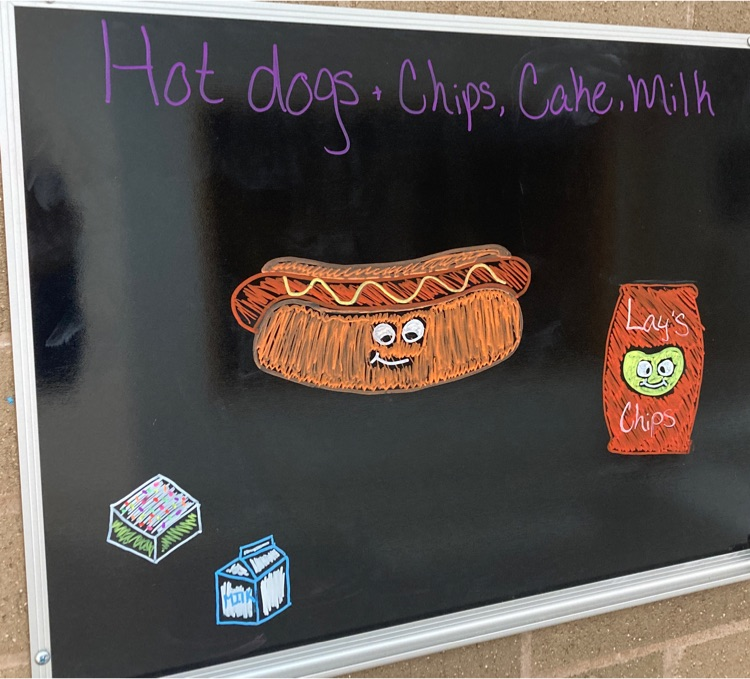 Hot dogs + Chips, Cake, Milk
Lay's
Chips
MILK